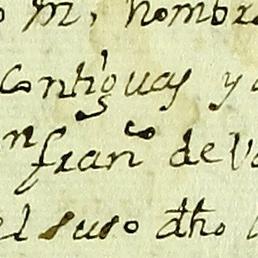 m, nombr
contiguas y
n fran^co de V
el suso dho